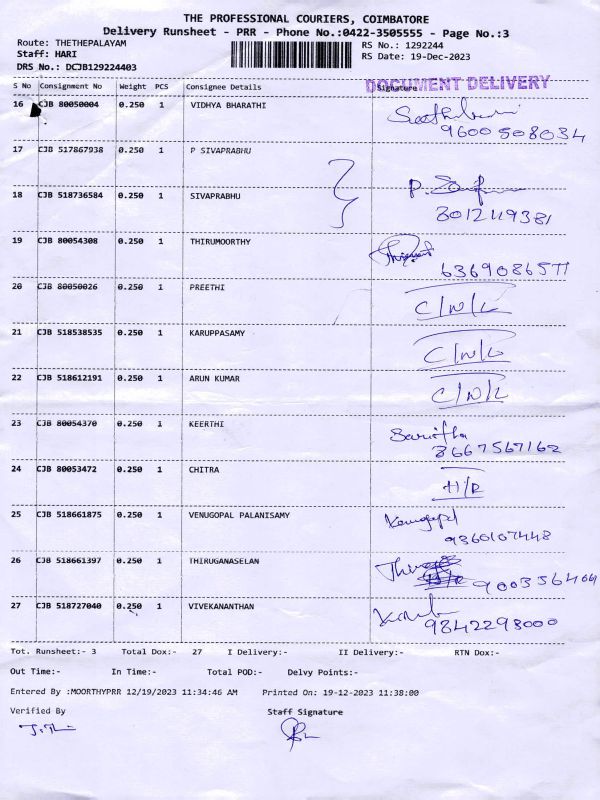 THE PROFESSIONAL COURIERS, COIMBATORE
Delivery Runsheet - PRR - Phone No.:0422-3505555 - Page No.:3
Route: THETHEPALAYAM
RS No.: 1292244
Staff: HARI
RS Date: 19-Dec-2023
DRS No.: DCJB129224403
DOCUMENT DELIVERY
S No Consignment No Weight PCS Consignee Details Signature
16 CJB 80050004 0.250 1 VIDHYA BHARATHI
9600508034
17 CJB 517867938 0.250 1 P SIVAPRABHU
18 CJB 518736584 0.250 1 SIVAPRABHU
19 CJB 80054308 0.250 1 THIRUMOORTHY
20 CJB 80050026 0.250 1 PREETHI C/N/L
21 CJB 518538535 0.250 1 KARUPPASAMY C/N/L
22 CJB 518612191 0.250 1 ARUN KUMAR C/N/L
23 CJB 80054370 0.250 1 KEERTHI
8667567162
24 CJB 80053472 0.250 1 CHITRA H/R
25 CJB 518661875 0.250 1 VENUGOPAL PALANISAMY
9360107448
26 CJB 518661397 0.250 1 THIRUGANASELAN
27 CJB 518727040 0.250 1 VIVEKANANTHAN
9842298000
Tot. Runsheet:- 3 Total Dox:- 27 I Delivery:- II Delivery:- RTN Dox:-
Out Time:- In Time:- Total POD:- Delvy Points:-
Entered By :MOORTHYPRR 12/19/2023 11:34:46 AM Printed On: 19-12-2023 11:38:00
Verified By Staff Signature